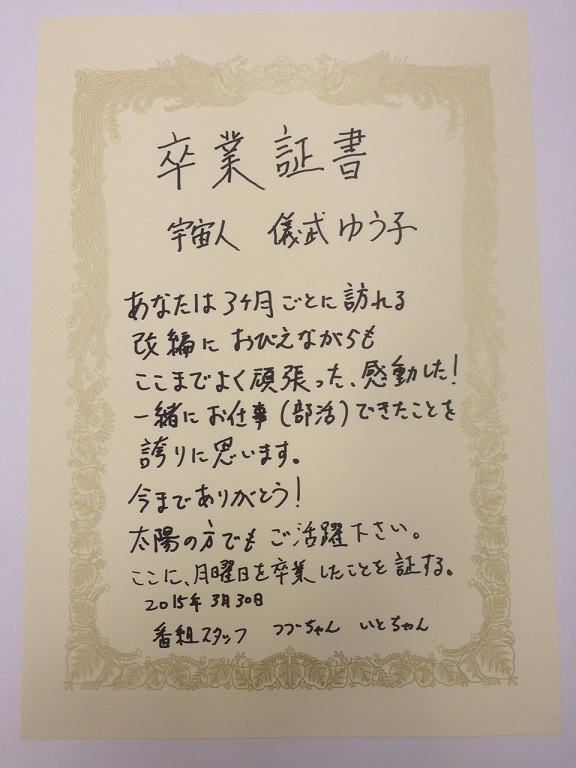 卒業証書
宇宙人 儀武ゆう子
あなたは3ヶ月ごとに訪れる
改編におびえながらも
ここまでよく頑張った、感動した!
一緒にお仕事(部活)できたことを
誇りに思います。
今までありがとう!
太陽の方でもご活躍下さい。
ここに、月曜日を卒業したことを証する。
2015年3月30日
番組スタッフ つづちゃん いとちゃん